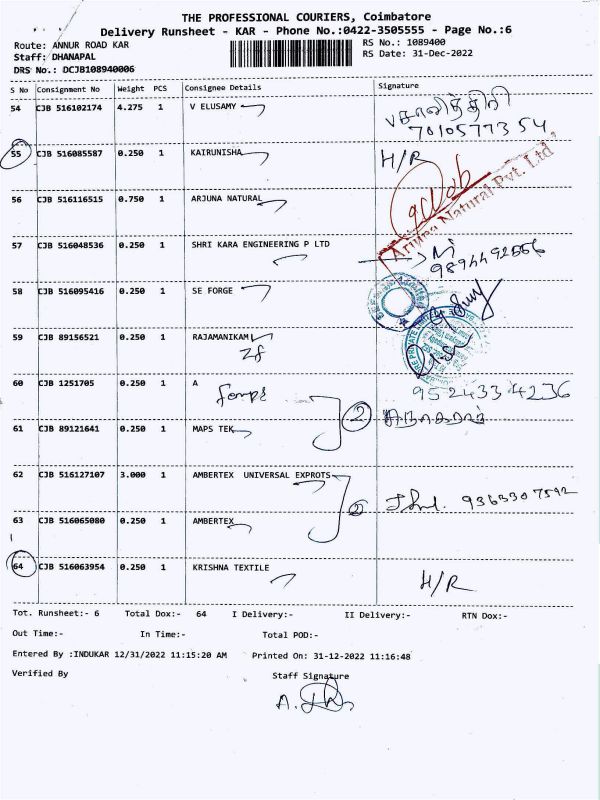 THE PROFESSIONAL COURIERS, Coimbatore
Delivery Runsheet - KAR - Phone No.:0422-3505555 - Page No.:6
Route: ANNUR ROAD KAR
RS No.: 1089400
Staff: DHANAPAL
RS Date: 31-Dec-2022
DRS No.: DCJB108940006
S No Consignment No Weight PCS Consignee Details Signature
54 CJB 516102174 4.275 1 V ELUSAMY
7010577354
55 CJB 516085587 0.250 1 KAIRUNISHA H/R
56 CJB 516116515 0.750 1 ARJUNA NATURAL
Arjuna Natural Pvt. Ltd.
57 CJB 516048536 0.250 1 SHRI KARA ENGINEERING P LTD
9894492556
58 CJB 516095416 0.250 1 SE FORGE
59 CJB 89156521 0.250 1 RAJAMANIKAM
60 CJB 1251705 0.250 1 A
9524334236
2
61 CJB 89121641 0.250 1 MAPS TEK
62 CJB 516127107 3.000 1 AMBERTEX UNIVERSAL EXPROTS
9363307592
63 CJB 516065080 0.250 1 AMBERTEX
64 CJB 516063954 0.250 1 KRISHNA TEXTILE
H/R
Tot. Runsheet:- 6 Total Dox:- 64 I Delivery:- II Delivery:- RTN Dox:-
Out Time:- In Time:- Total POD:-
Entered By :INDUKAR 12/31/2022 11:15:20 AM Printed On: 31-12-2022 11:16:48
Verified By Staff Signature